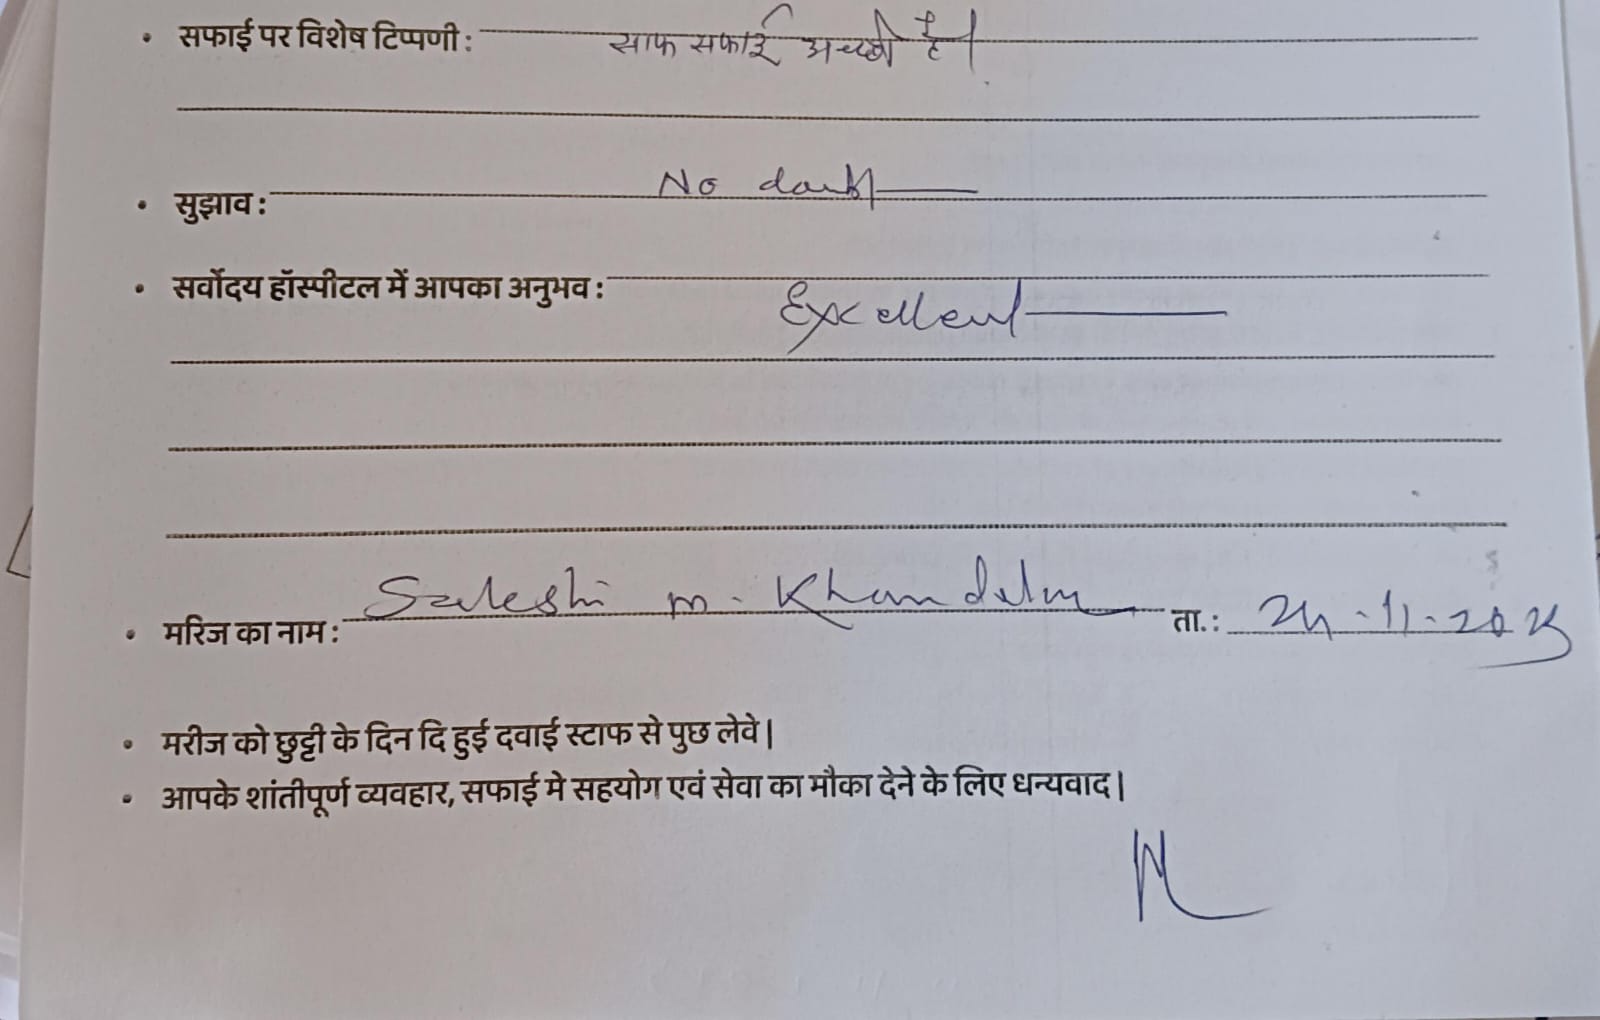 • सफाई पर विशेष टिप्पणी : साफ सफाई अच्छी है।
• सुझाव : No doubt
• सर्वोदय हॉस्पीटल में आपका अनुभव : Excellent
• मरिज का नाम : m. ता. : 24.11.2025
• मरीज को छुट्टी के दिन दि हुई दवाई स्टाफ से पुछ लेवे।
• आपके शांतीपूर्ण व्यवहार, सफाई मे सहयोग एवं सेवा का मौका देने के लिए धन्यवाद।